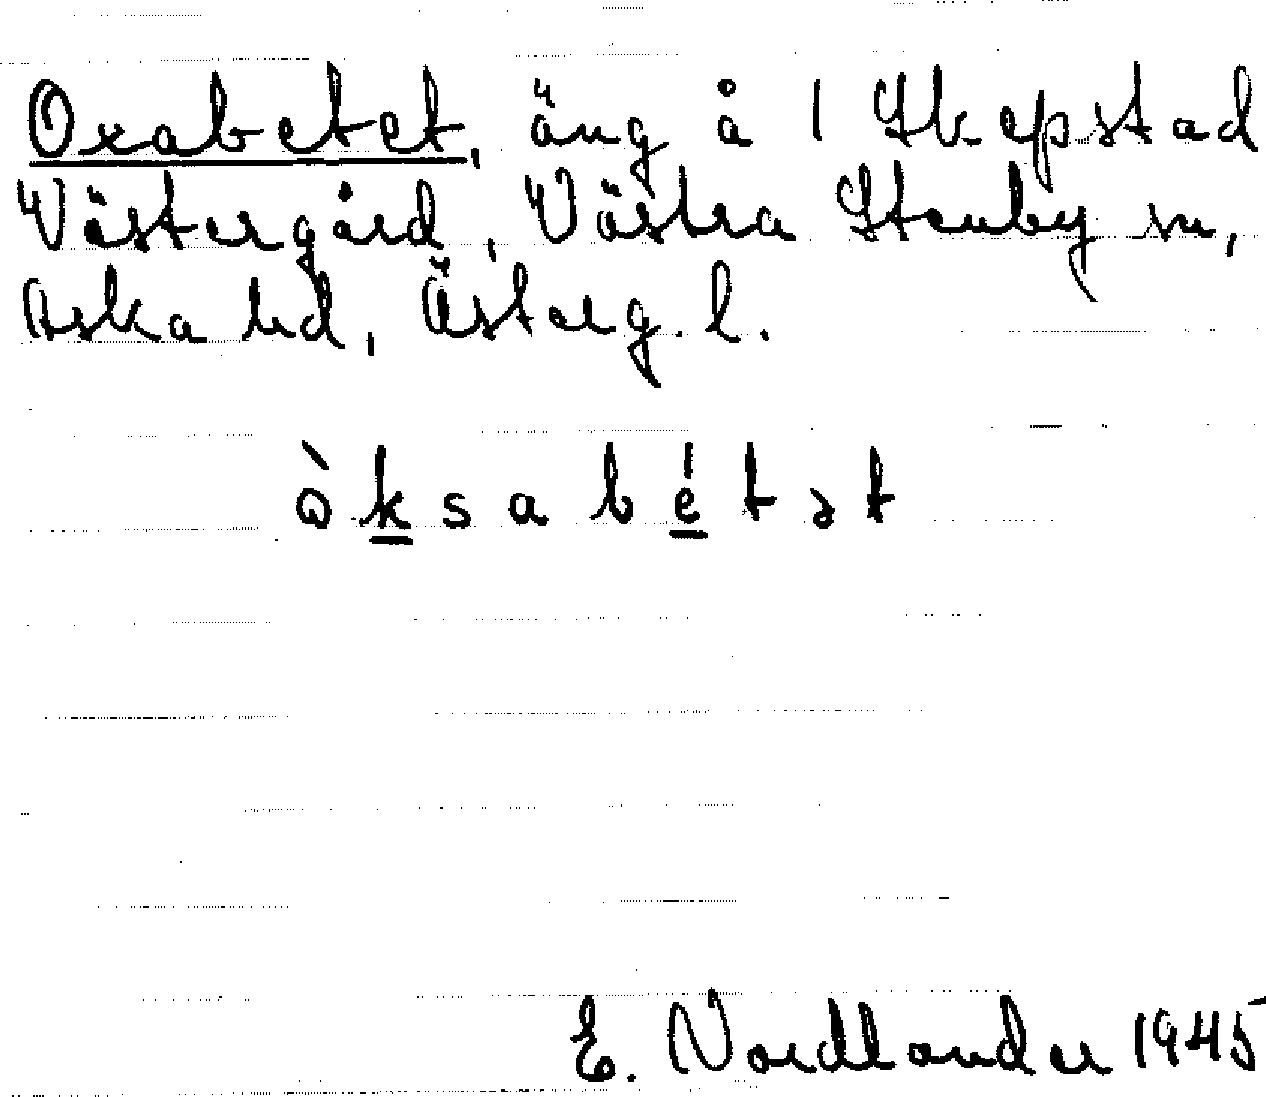 Oxabetet, äng å 1 Skepstad
Västergård, Västra Stenby sn,
Aska hd, Österg. l.
ò̱ksabétət
E. Nordlander 1945